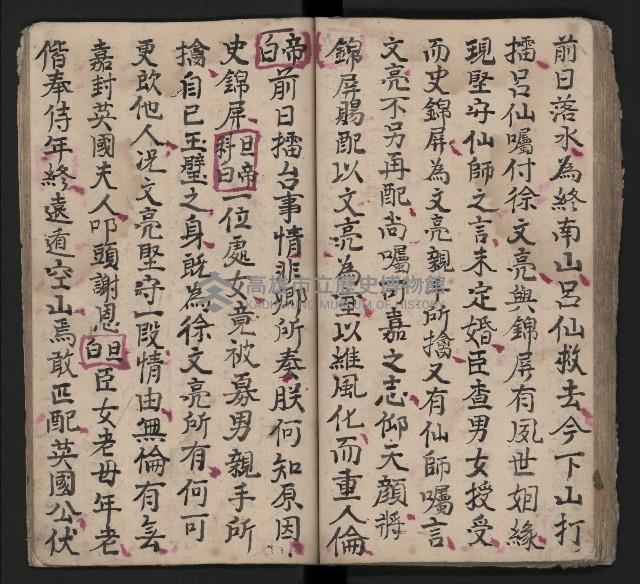 前日落水為終南山呂仙救去今下山打
擂呂仙囑付徐文亮與錦屏有夙世姻緣
現堅守仙師之言未定婚臣查男女授受
而史錦屏為文亮親手所擒又有仙師囑言
文亮不另再配尚囑可嘉之志仰天顏將
錦屏賜配以文亮為室以維風化而重人倫
帝白前日擂台事情非卿所奏朕何知原因
史錦屏旦斜白帝一位處女竟被募男親手所
擒自己玉璧之身既為徐文亮所有何可
更改他人况文亮堅守一段情由無倫有無
嘉封英國夫人叩頭謝恩旦白臣女老母年老
偕奉侍年終遠遁空山焉敢匹配英國公伏
高雄市立歷史博物館
KAOHSIUNG MUSEUM OF HISTORY